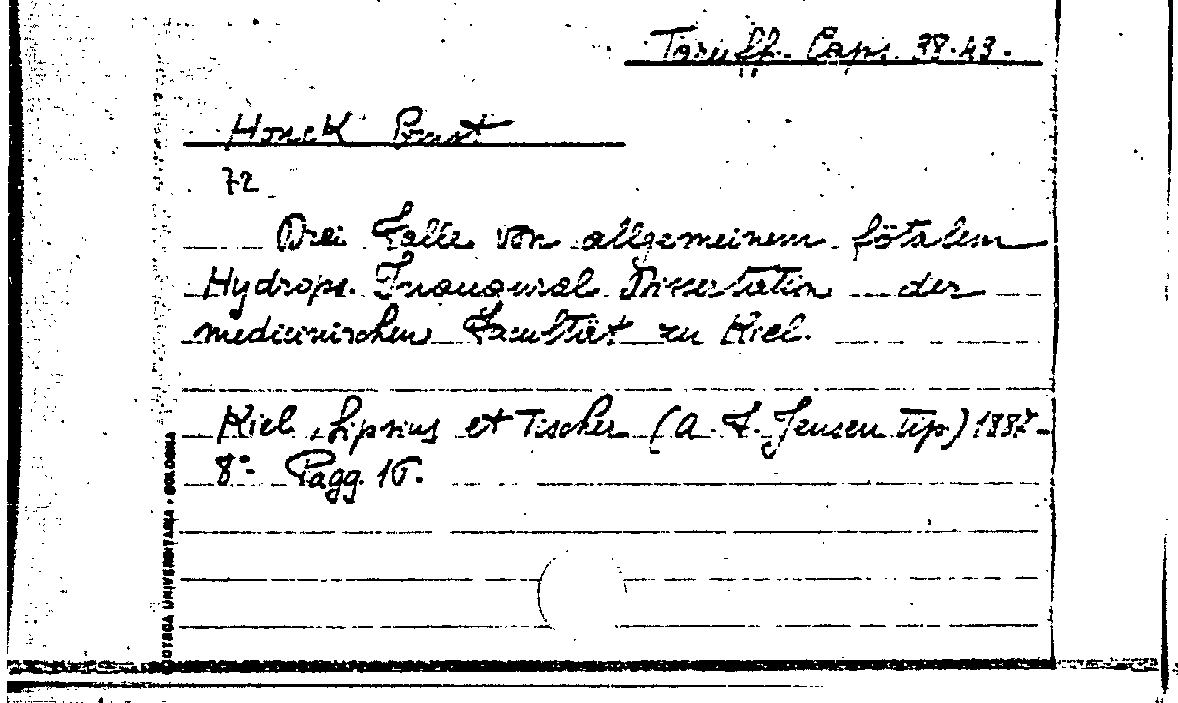 Taruff. Caps. 38.43.
Honck Ernst
72
Drei Falle von allgemeinem fötalem
Hydrops. Inaugural Dissertation der
medicinischen Facultät zu Kiel.
Kiel, Lipsius et Tischer (A. F. Jensen tip) 1887.
8º Pagg. 16.
OTECA UNIVERSITARIA • BOLOGNA